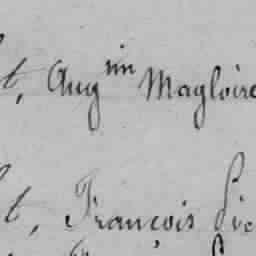 t, Aug^in Magloire
t, François